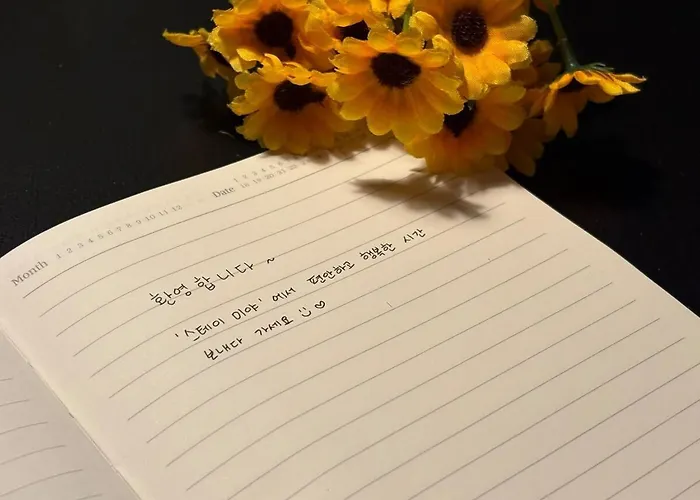 Month 1 2 3 4 5 6 7 8 9 10 11 12 Date 1 2 3 4 5
18 19 20 21 22
환영합니다 ~
'스테이 미야' 에서 편안하고 행복한 시간
보내다 가세요 :) ♡